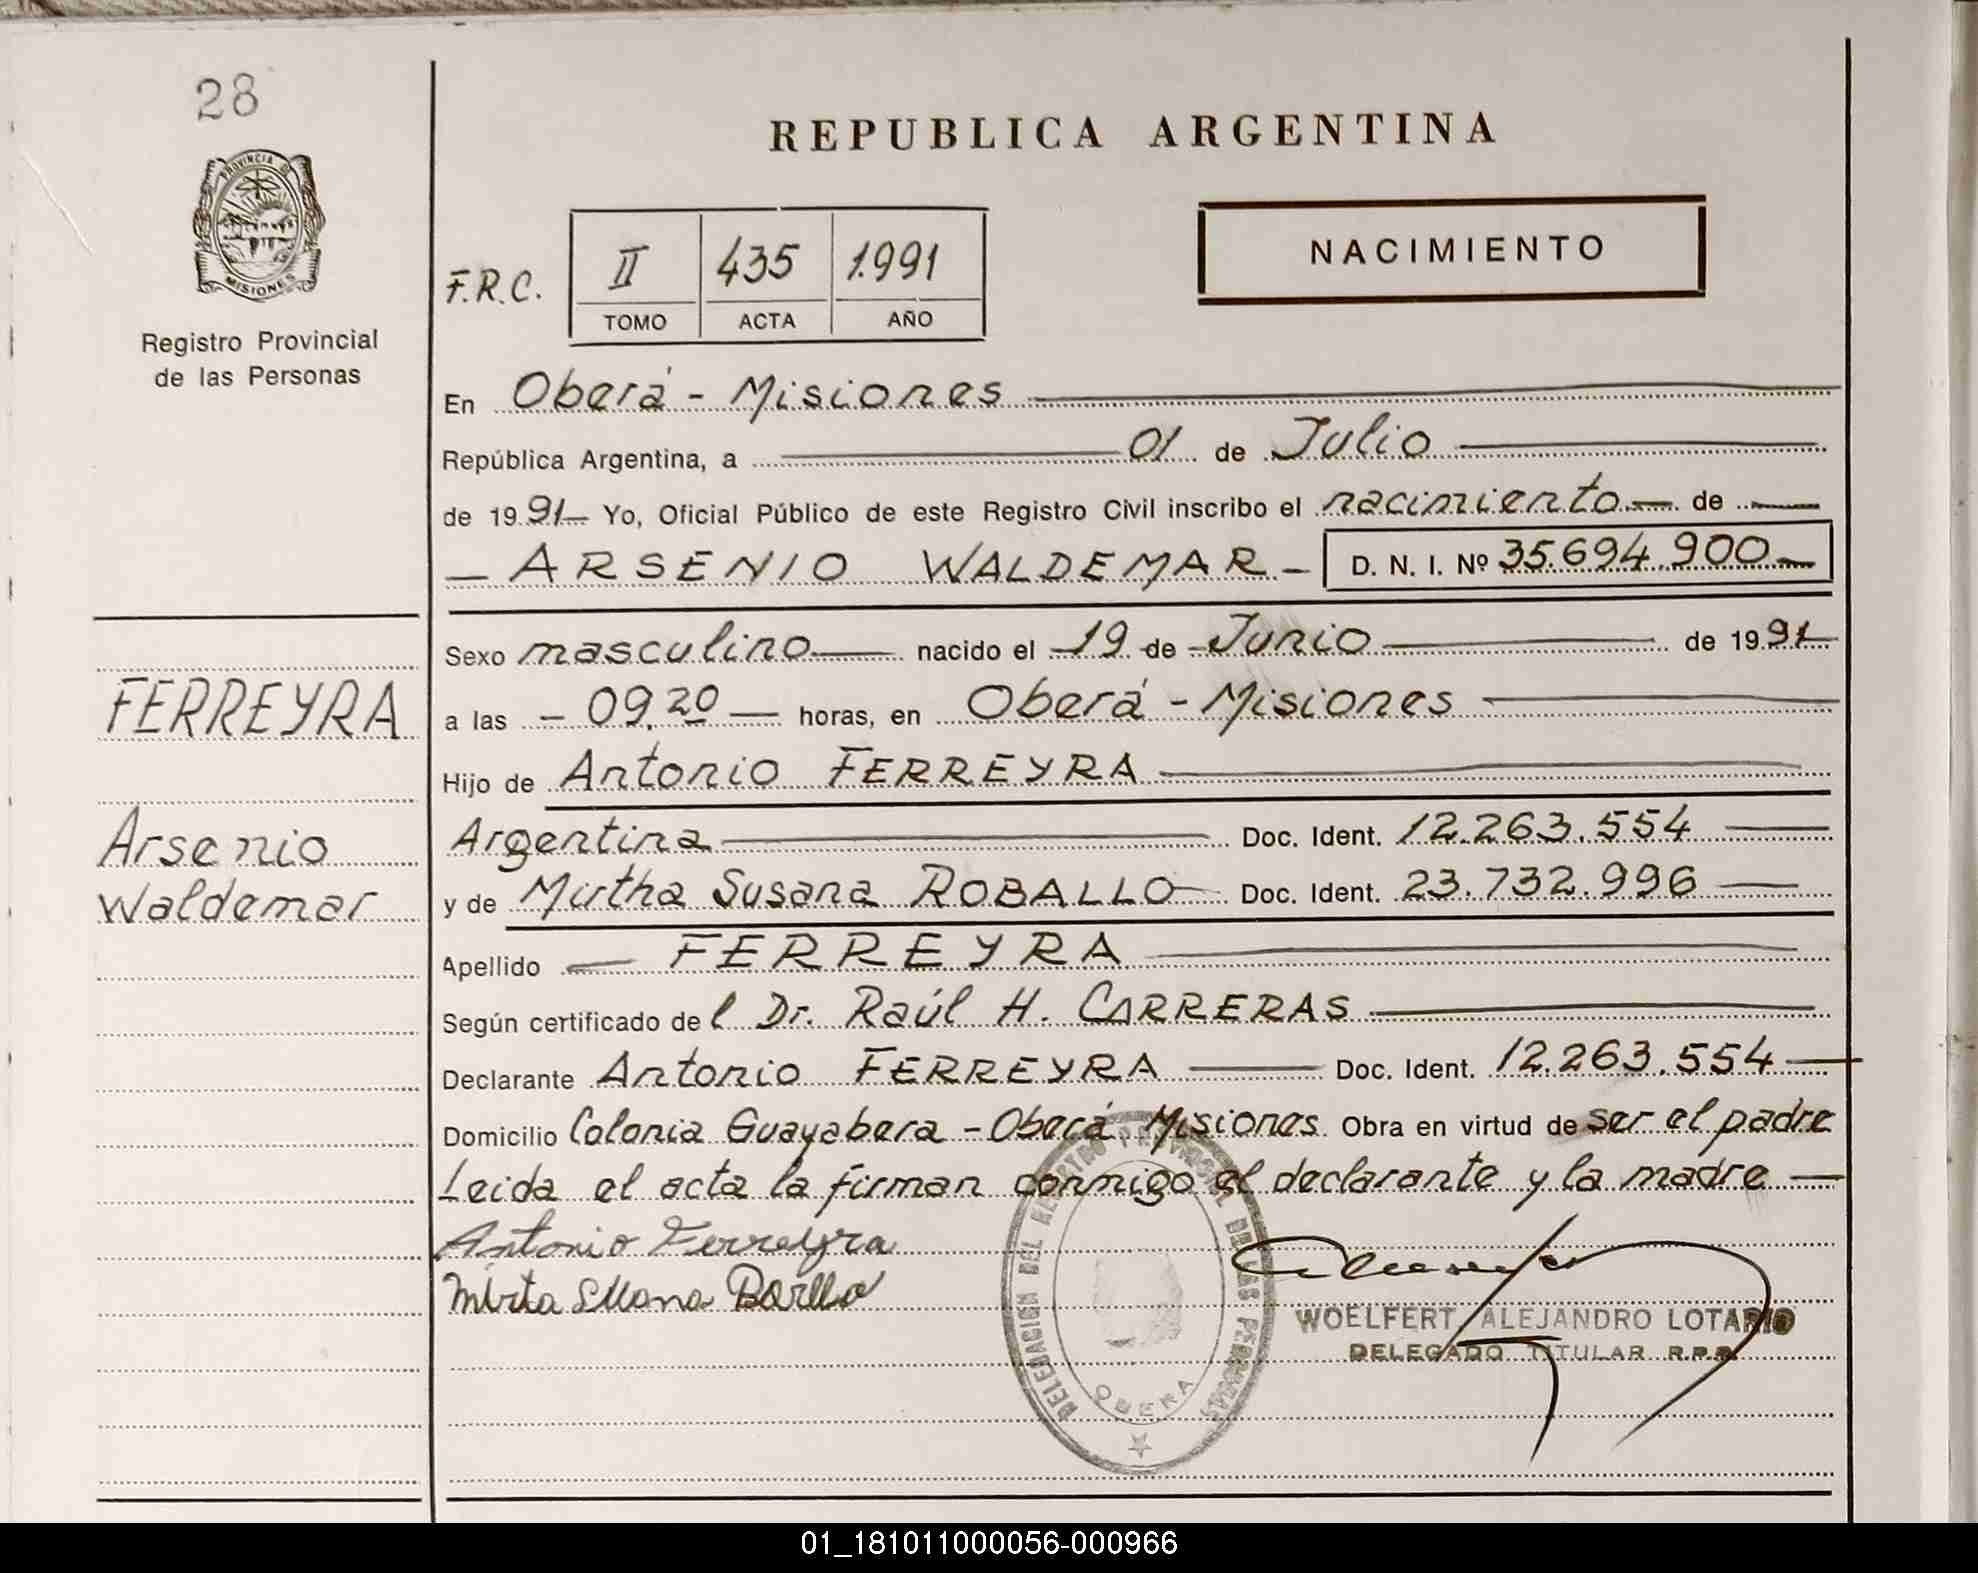 28
PROVINCIA DE
MISIONES
Registro Provincial
de las Personas
FERREYRA
Arsenio
Waldemar
REPUBLICA ARGENTINA
NACIMIENTO
F.R.C. II 435 1.991
TOMO ACTA AÑO
En Oberá - Misiones
República Argentina, a 01 de Julio
de 1991 Yo, Oficial Público de este Registro Civil inscribo el nacimiento de
- ARSENIO WALDEMAR - D. N. I. Nº 35.694.900
Sexo masculino nacido el 19 de Junio de 1991
a las - 09,20 - horas, en Oberá - Misiones
Hijo de Antonio FERREYRA
Argentina Doc. Ident. 12.263.554
y de Mirtha Susana ROBALLO Doc. Ident. 23.732.996
Apellido - FERREYRA
Según certificado del Dr. Raúl H. CARRERAS
Declarante Antonio FERREYRA Doc. Ident. 12.263.554
Domicilio Colonia Guayabera - Oberá Misiones. Obra en virtud de ser el padre
Leida el acta la firman conmigo el declarante y la madre
Antonio Ferreyra
Mirta
DELEGACION DEL REGISTRO PROVINCIAL DE LAS PERSONAS
OBERA
WOELFERT ALEJANDRO LOTARIO
DELEGADO TITULAR R.P.P.
01_181011000056-000966